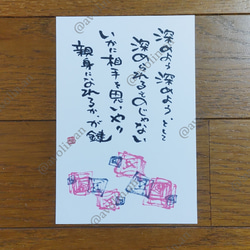 深めよう深めよう、として
深められるものじゃない
いかに相手を思いやり
親身になれるか、が鍵